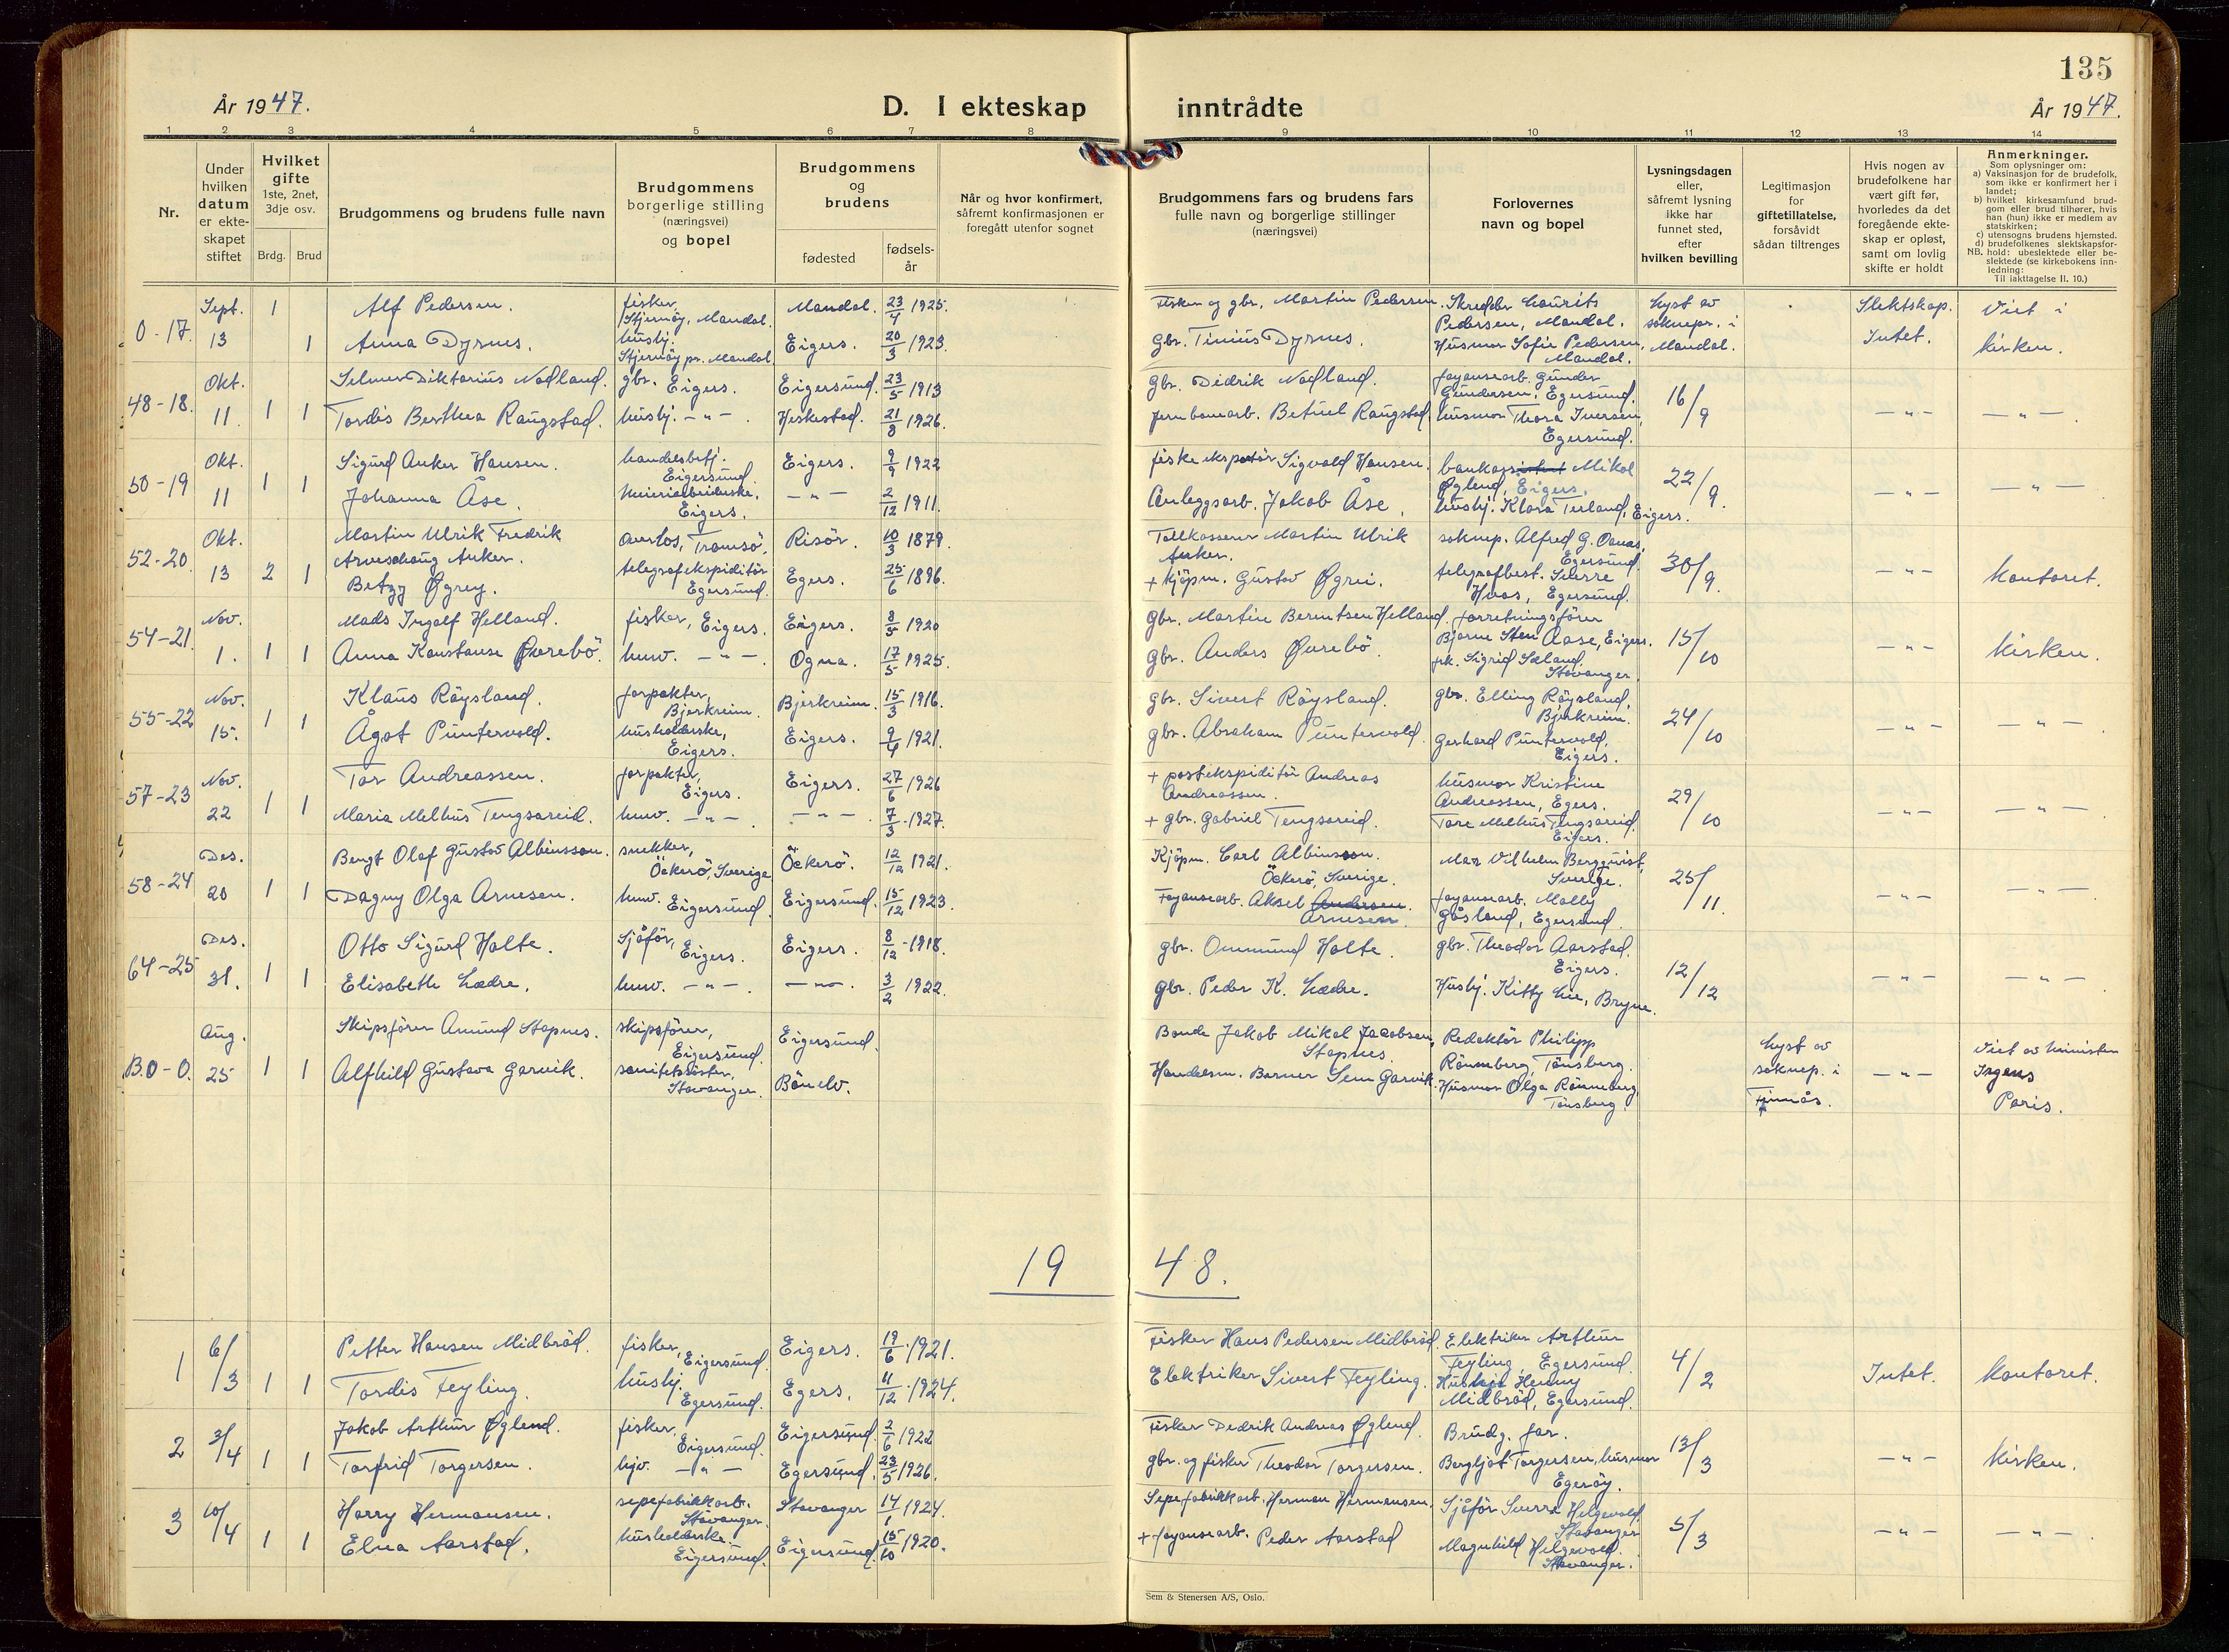 135
År 1947.
D. I ekteskap inntrådte
År 1947.
1 2 3 4 5 6 7 8 9 10 11 12 13 14
Nr.
Under hvilken datum er ekteskapet stiftet
Hvilket gifte 1ste, 2net, 3dje osv.
Brdg. Brud
Brudgommens og brudens fulle navn
Brudgommens borgerlige stilling (næringsvei) og bopel
Brudgommens og brudens
fødested
fødselsår
Når og hvor konfirmert, såfremt konfirmasjonen er foregått utenfor sognet
Brudgommens fars og brudens fars fulle navn og borgerlige stillinger (næringsvei)
Forlovernes navn og bopel
Lysningsdagen eller, såfremt lysning ikke har funnet sted, efter hvilken bevilling
Legitimasjon for giftetillatelse, forsåvidt sådan tiltrenges
Hvis nogen av brudefolkene har vært gift før, hvorledes da det foregående ekteskap er opløst, samt om lovlig skifte er holdt
Anmerkninger.
Som oplysninger om:
a) Vaksinasjon for de brudefolk, som ikke er konfirmert her i landet;
b) hvilket kirkesamfund brudgom eller brud tilhører, hvis han (hun) ikke er medlem av statskirken;
c) utensogns brudens hjemsted.
d) brudefolkenes slektskapsforhold: ubeslektede eller beslektede (se kirkebokens innledning:
NB.
Til iakttagelse II. 10.)
0-17. Sept. 13 1 Alf Pedersen. fisker, Stjernøy, Mandal. Mandal. 23/4 1925. Fisker og gbr. Martin Pedersen. Skredder Laurits Pedersen, Mandal. Lyst av soknepr. i Mandal. Slektskap. Intet. Viet i kirken.
1 Anna Dyrnes. husbj. Stjernøy pr. Mandal. Eigers. 20/3 1923. Gbr. Tinius Dyrnes. Husmor Sofie Pedersen, Mandal.
48-18. Okt. 11. 1 1 Selmer Diktorius Nodland. gbr. Eigers. Eigersund. 23/5 1913 Gbr. Didrik Nodland. fayansearb. Gunder Gundersen, Egersund. 16/9 -"- -"-
Tordis Berthea Raugstad. husbj. -"- Heskestad. 21/8 1926. Jernbanearb. Betuel Raugstad. husmor Thora Iversen, Egersund.
50-19 Okt. 11 1 1 Sigurd Anker Hansen. handelsbetj. Eigersund. Eigers. 9/9 1922 fiskeeksportör Sigvald Hansen. Mikal Øglend, Eigers. 22/9. -"- -"-
Johanna Åse. meieriarbeiderske, Eigers. -"- 2/12 1911. Anleggsarb. Jakob Åse. husbj. Klara Terland, Eigers.
52-20. Okt. 13 2 1 Martin Ulrik Fredrik Anker. overlos, Tromsö. Risör. 10/3 1879. Tollkasserer Martin Ulrik Anker. soknep. Alfred G. Egersund. 30/9. -"- kontoret.
Betzy Øgrey. telegrafekspiditör Egersund. Egers. 25/6 1896. + Kjöpm. Gustav Øgrei. telegrafbest. Sverre Hvas, Egersund.
54-21. Nov. 1. 1 1 Mads Ingolf Helland. fisker, Eigers. Eigers. 8/5 1920 Gbr. Martin Berentsen Helland. forretningsförer Bjarne Sten Aase, Eigers. 15/10 -"- kirken.
Anna Konstanse Øvrebö. husv. -"-. Ogna. 17/5 1925. Gbr. Anders Øvrebö. frk. Sigrid Sæland, Stavanger.
55-22 Nov. 15. 1 1 Klaus Röysland. forpakter, Bjerkreim. Bjerkreim. 15/3 1916. Gbr. Sivert Röysland. gbr. Elling Röysland, Bjerkreim. 24/10 -"- -"-
Ågot Puntervold. husholderske, Eigers. Eigers. 9/4 1921. gbr. Abraham Puntervold. Gerhard Puntervold, Eigers.
57-23 Nov. 22 1 1 Tor Andreassen. forpakter, Eigers. Eigers. 27/6 1926 + postekspiditör Andreas Andreassen. husmor Kristine Andreassen, Egers. 29/10 -"- -"-
Maria Melhus Tengsareid. husv. -"-. -"-. 7/3 1927. + gbr. Gabriel Tengsareid. Tore Melhus Tengsareid. Eigers.
58-24 Des. 20 1 1 Bengt Olof Gustav Albinsson. snekker, Öckerö, Sverige Öckerö. 12/12 1921. Kjöpm. Carl Albinsson. Öckerö, Sverige. Max Vilhelm Bergqvist, Sverige. 25/11. -"- -"-
Dagny Olga Arnesen. husv. Eigersund. Eigersund. 15/12 1923. Fayansearb. Aksel Andersen. Arnesen fayansearb. Molly Gåsland, Egersund.
64-25 Des. 31. 1 1 Otto Sigurd Holte. Sjåför, Eigers. Eigers. 8/12 1918. gbr. Ommund Holte. gbr. Theodor Aarstad. Eigers. 12/12 -"- -"-
Elisabeth Lædre. husv. -"-. -"-. 3/2 1922. Gbr. Peder K. Lædre. Husbj. Kitty Lie, Bryne.
B.0-0. Aug. 25 1 1 Skipsförer Amund Stapnes. skipsförer, Eigersund. Eigersund. Bonde Jakob Mikal Jacobsen Stapnes. Redaktör Philipp Rönneberg, Tönsberg. Lyst av soknep. i -"- Viet av Irgens Paris.
Alfhild Gustava Garvik. sanitetssöster, Stavanger. Handelsm. Berner Sem Garvik. Husmor Olga Rönneberg, Tönsberg.
1948.
1 6/3 1 1 Petter Hansen Midbröd. fisker, Eigersund. Eigers. 19/6 1921. Fisker Hans Pedersen Midbröd. Elektriker Arthur Feyling, Egersund. 4/2 Intet. kontoret.
Tordis Feyling. husbj. Egersund. Egers. 11/12 1924. Elektriker Sivert Feyling. Henny Midbröd, Egersund.
2 3/4 1 1 Jakob Arthur Øglend. fisker, Eigersund. Eigersund. 2/6 1922 Fisker Dedrik Andreas Øglend. Brudg. far. 13/3 -"- kirken.
Torfrid Torgersen. hjv. -"- Egersund. 23/5 1926. gbr. og fisker Theodor Torgersen. Bergljot Torgersen, husmor Egeröy.
3 10/4 1 1 Harry Hermansen. sepefabrikkarb. Stavanger. Stavanger 14/1 1924. Sepefabrikkarb. Herman Hermansen. Sjåför Sverre Helgevold, Stavanger 5/3 -"- -"-.
Elna Aarstad. husholderske. Eigersund. Eigersund. 15/10 1920. + fayansearb. Peder Aarstad Magnhild Helgevold. Stavanger.
Sem & Stenersen A/S, Oslo.